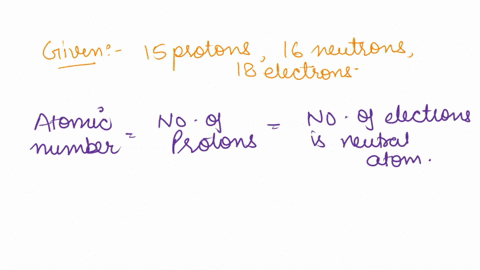 Given:- 15 protons, 16 neutrons,
18 electrons.
Atomic number = No. of Protons = No. of elections is neutral atom.